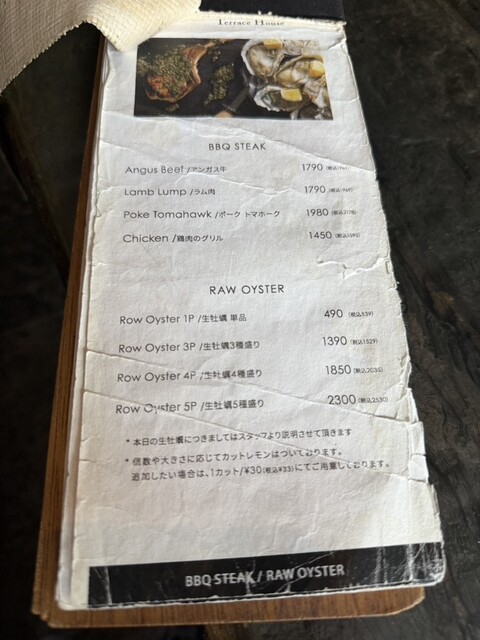 Terrace House
BBQ STEAK
Angus Beef /アンガス牛 1790 (税込1969)
Lamb Lump /ラム肉 1790 (税込1969)
Poke Tomahawk /ポーク トマホーク 1980 (税込2178)
Chicken /鶏肉のグリル 1450 (税込1595)
RAW OYSTER
Row Oyster 1P /生牡蠣 単品 490 (税込539)
Row Oyster 3P /生牡蠣3種盛り 1390 (税込1529)
Row Oyster 4P /生牡蠣4種盛り 1850 (税込2035)
Row Oyster 5P /生牡蠣5種盛り 2300 (税込2530)
* 本日の生牡蠣につきましてはスタッフより説明させて頂きます
* 個数や大きさに応じてカットレモンはついております。
追加したい場合は、1カット/¥30(税込¥33)にてご用意しております。
BBQ STEAK / RAW OYSTER